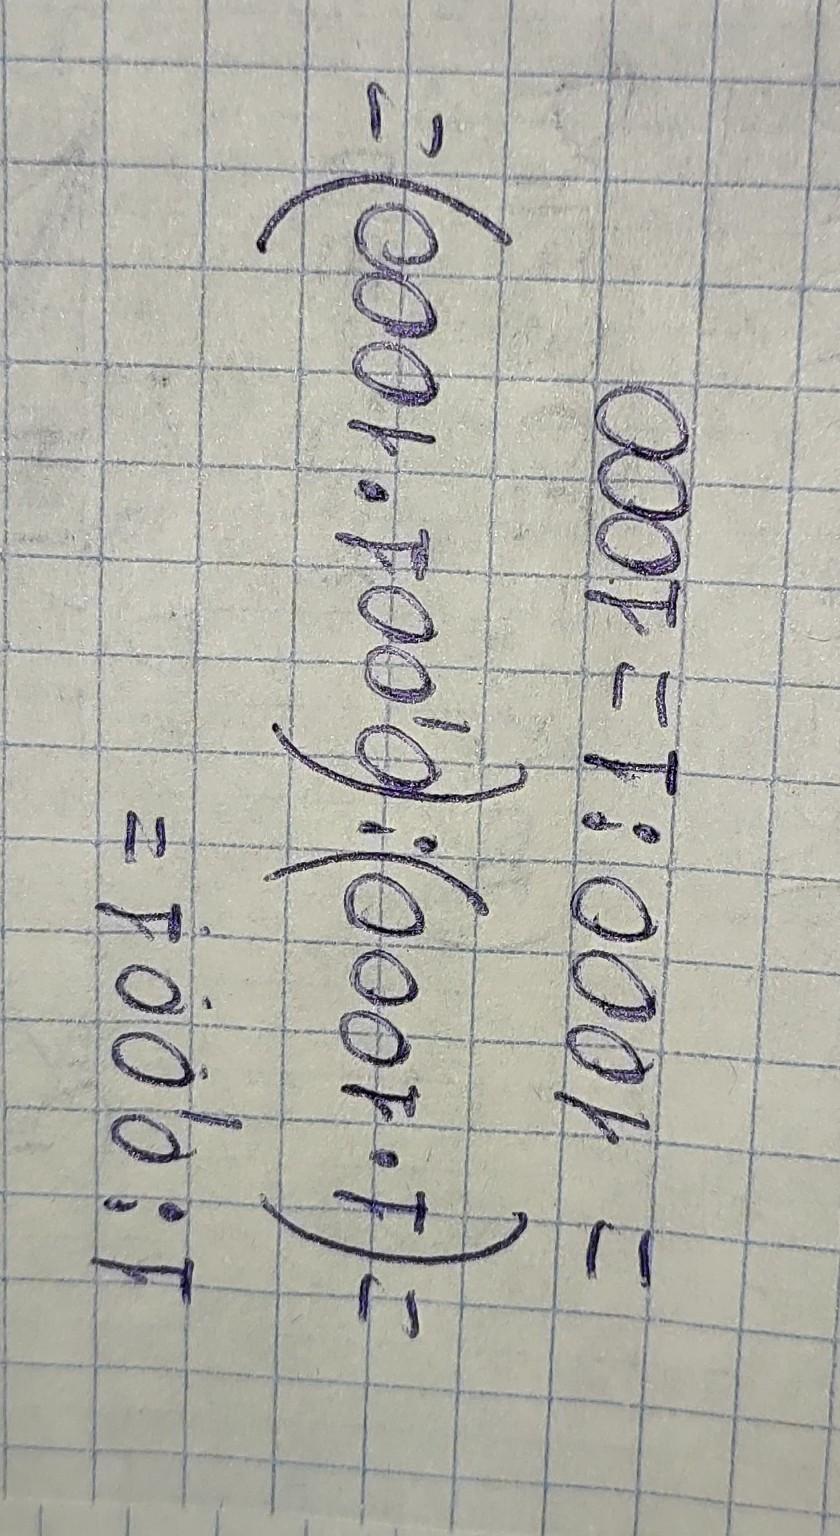 1:0,001=
=(1·1000):(0,001·1000)=
=1000:1=1000